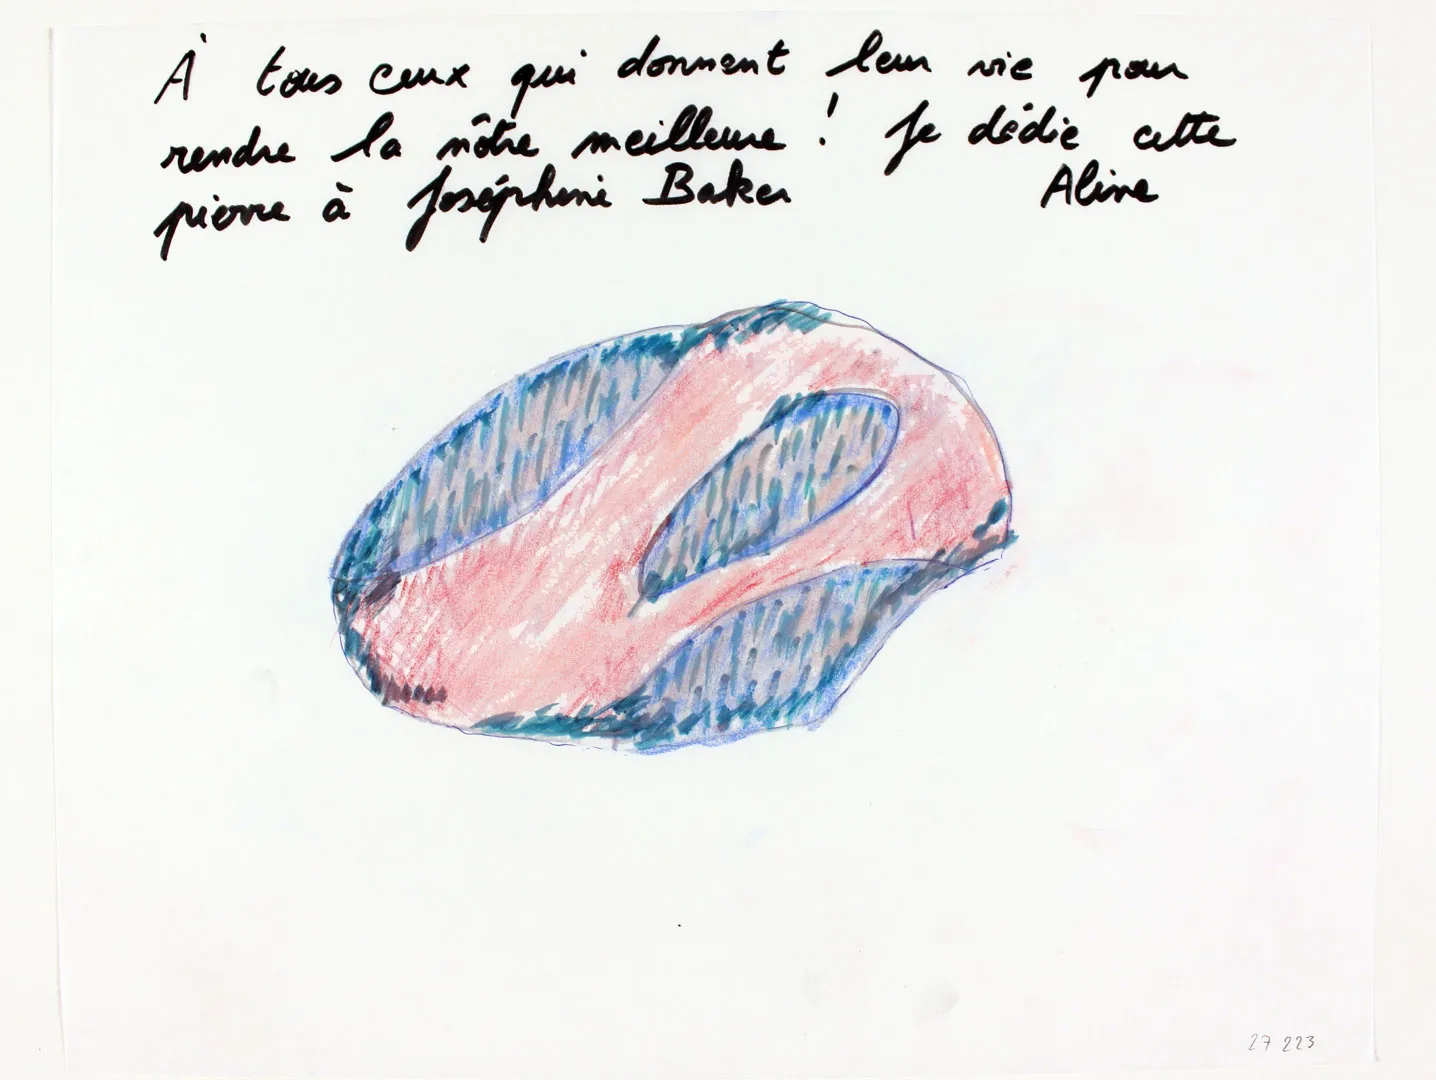 À tous ceux qui donnent leur vie pour
rendre la nôtre meilleure ! Je dédie cette
pierre à Joséphine Baker Aline
27 223